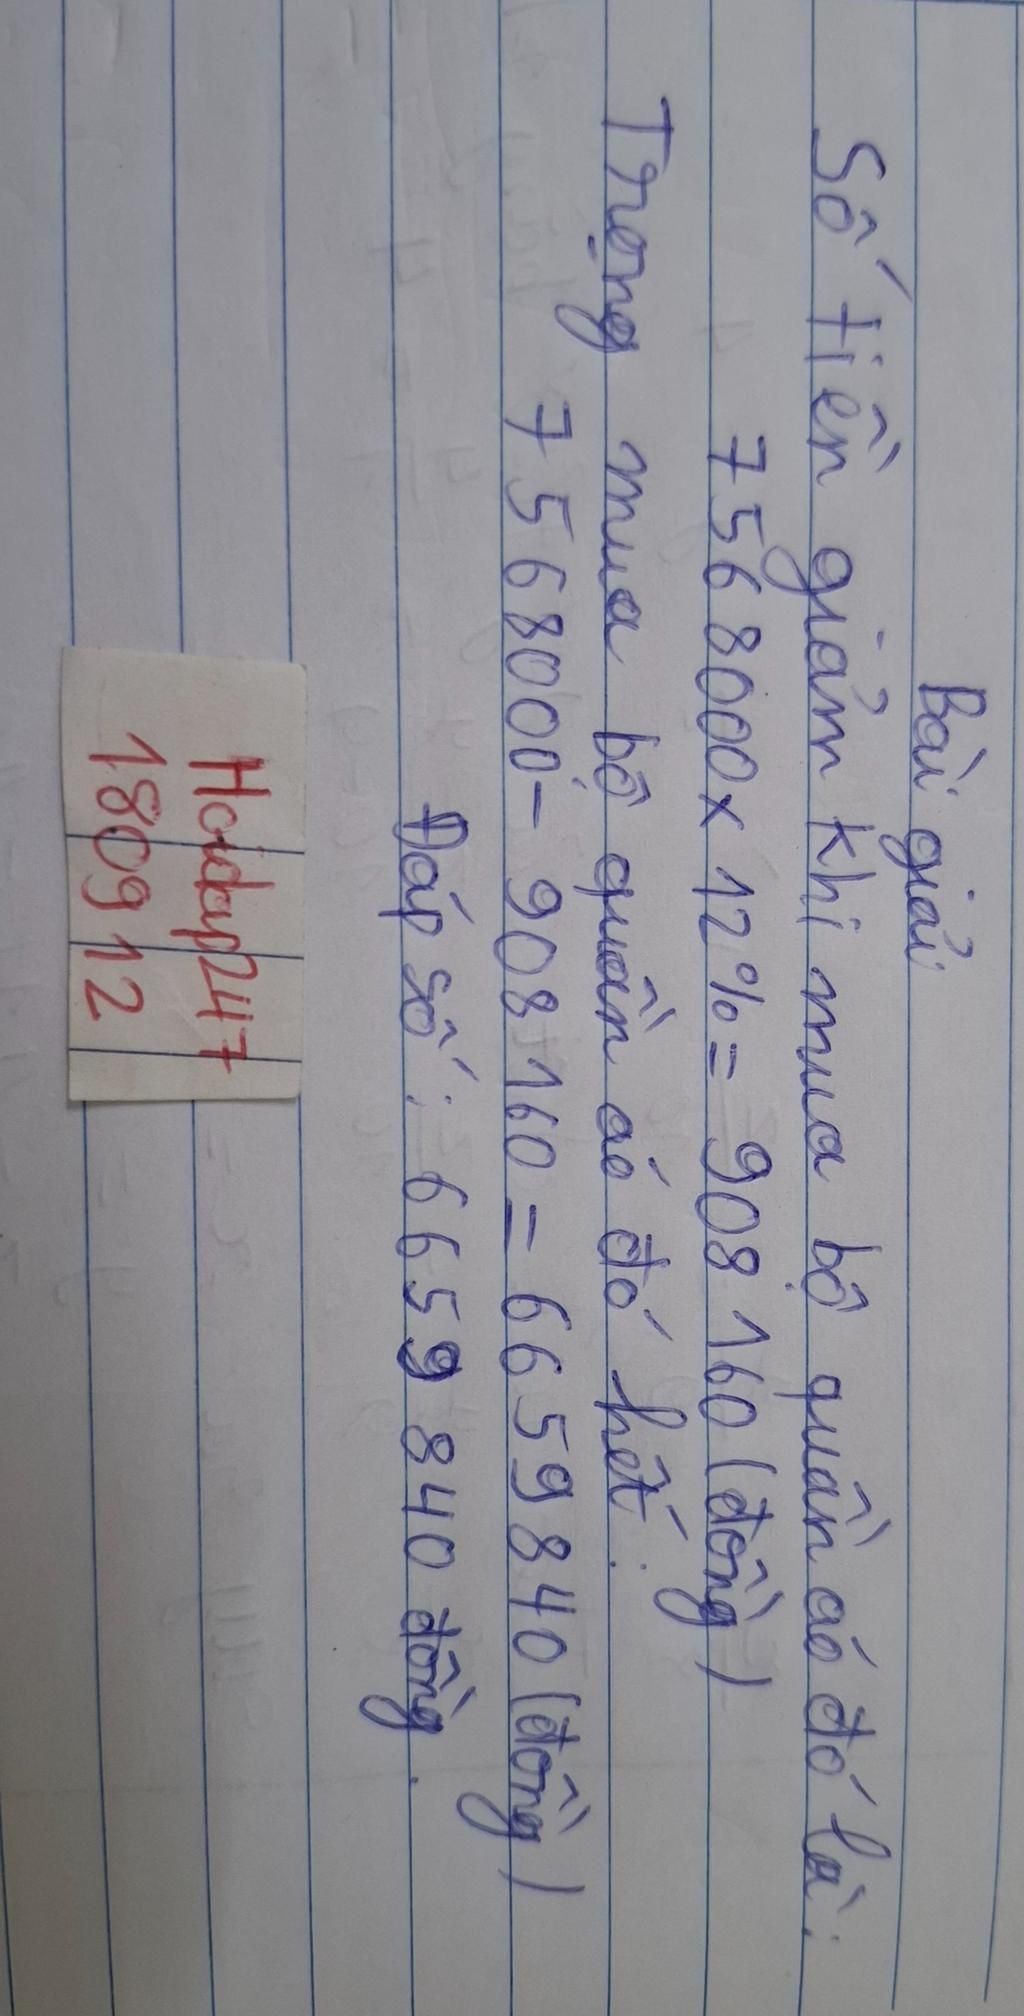 Bài giải
Số tiền giảm khi mua bộ quần áo đó là:
7568000 x 12% = 908 160 (đồng)
Trọng mua bộ quần áo đó hết:
7568000 - 908160 = 6659840 (đồng)
Đáp số: 6659 840 đồng.
Hoidap247
180912